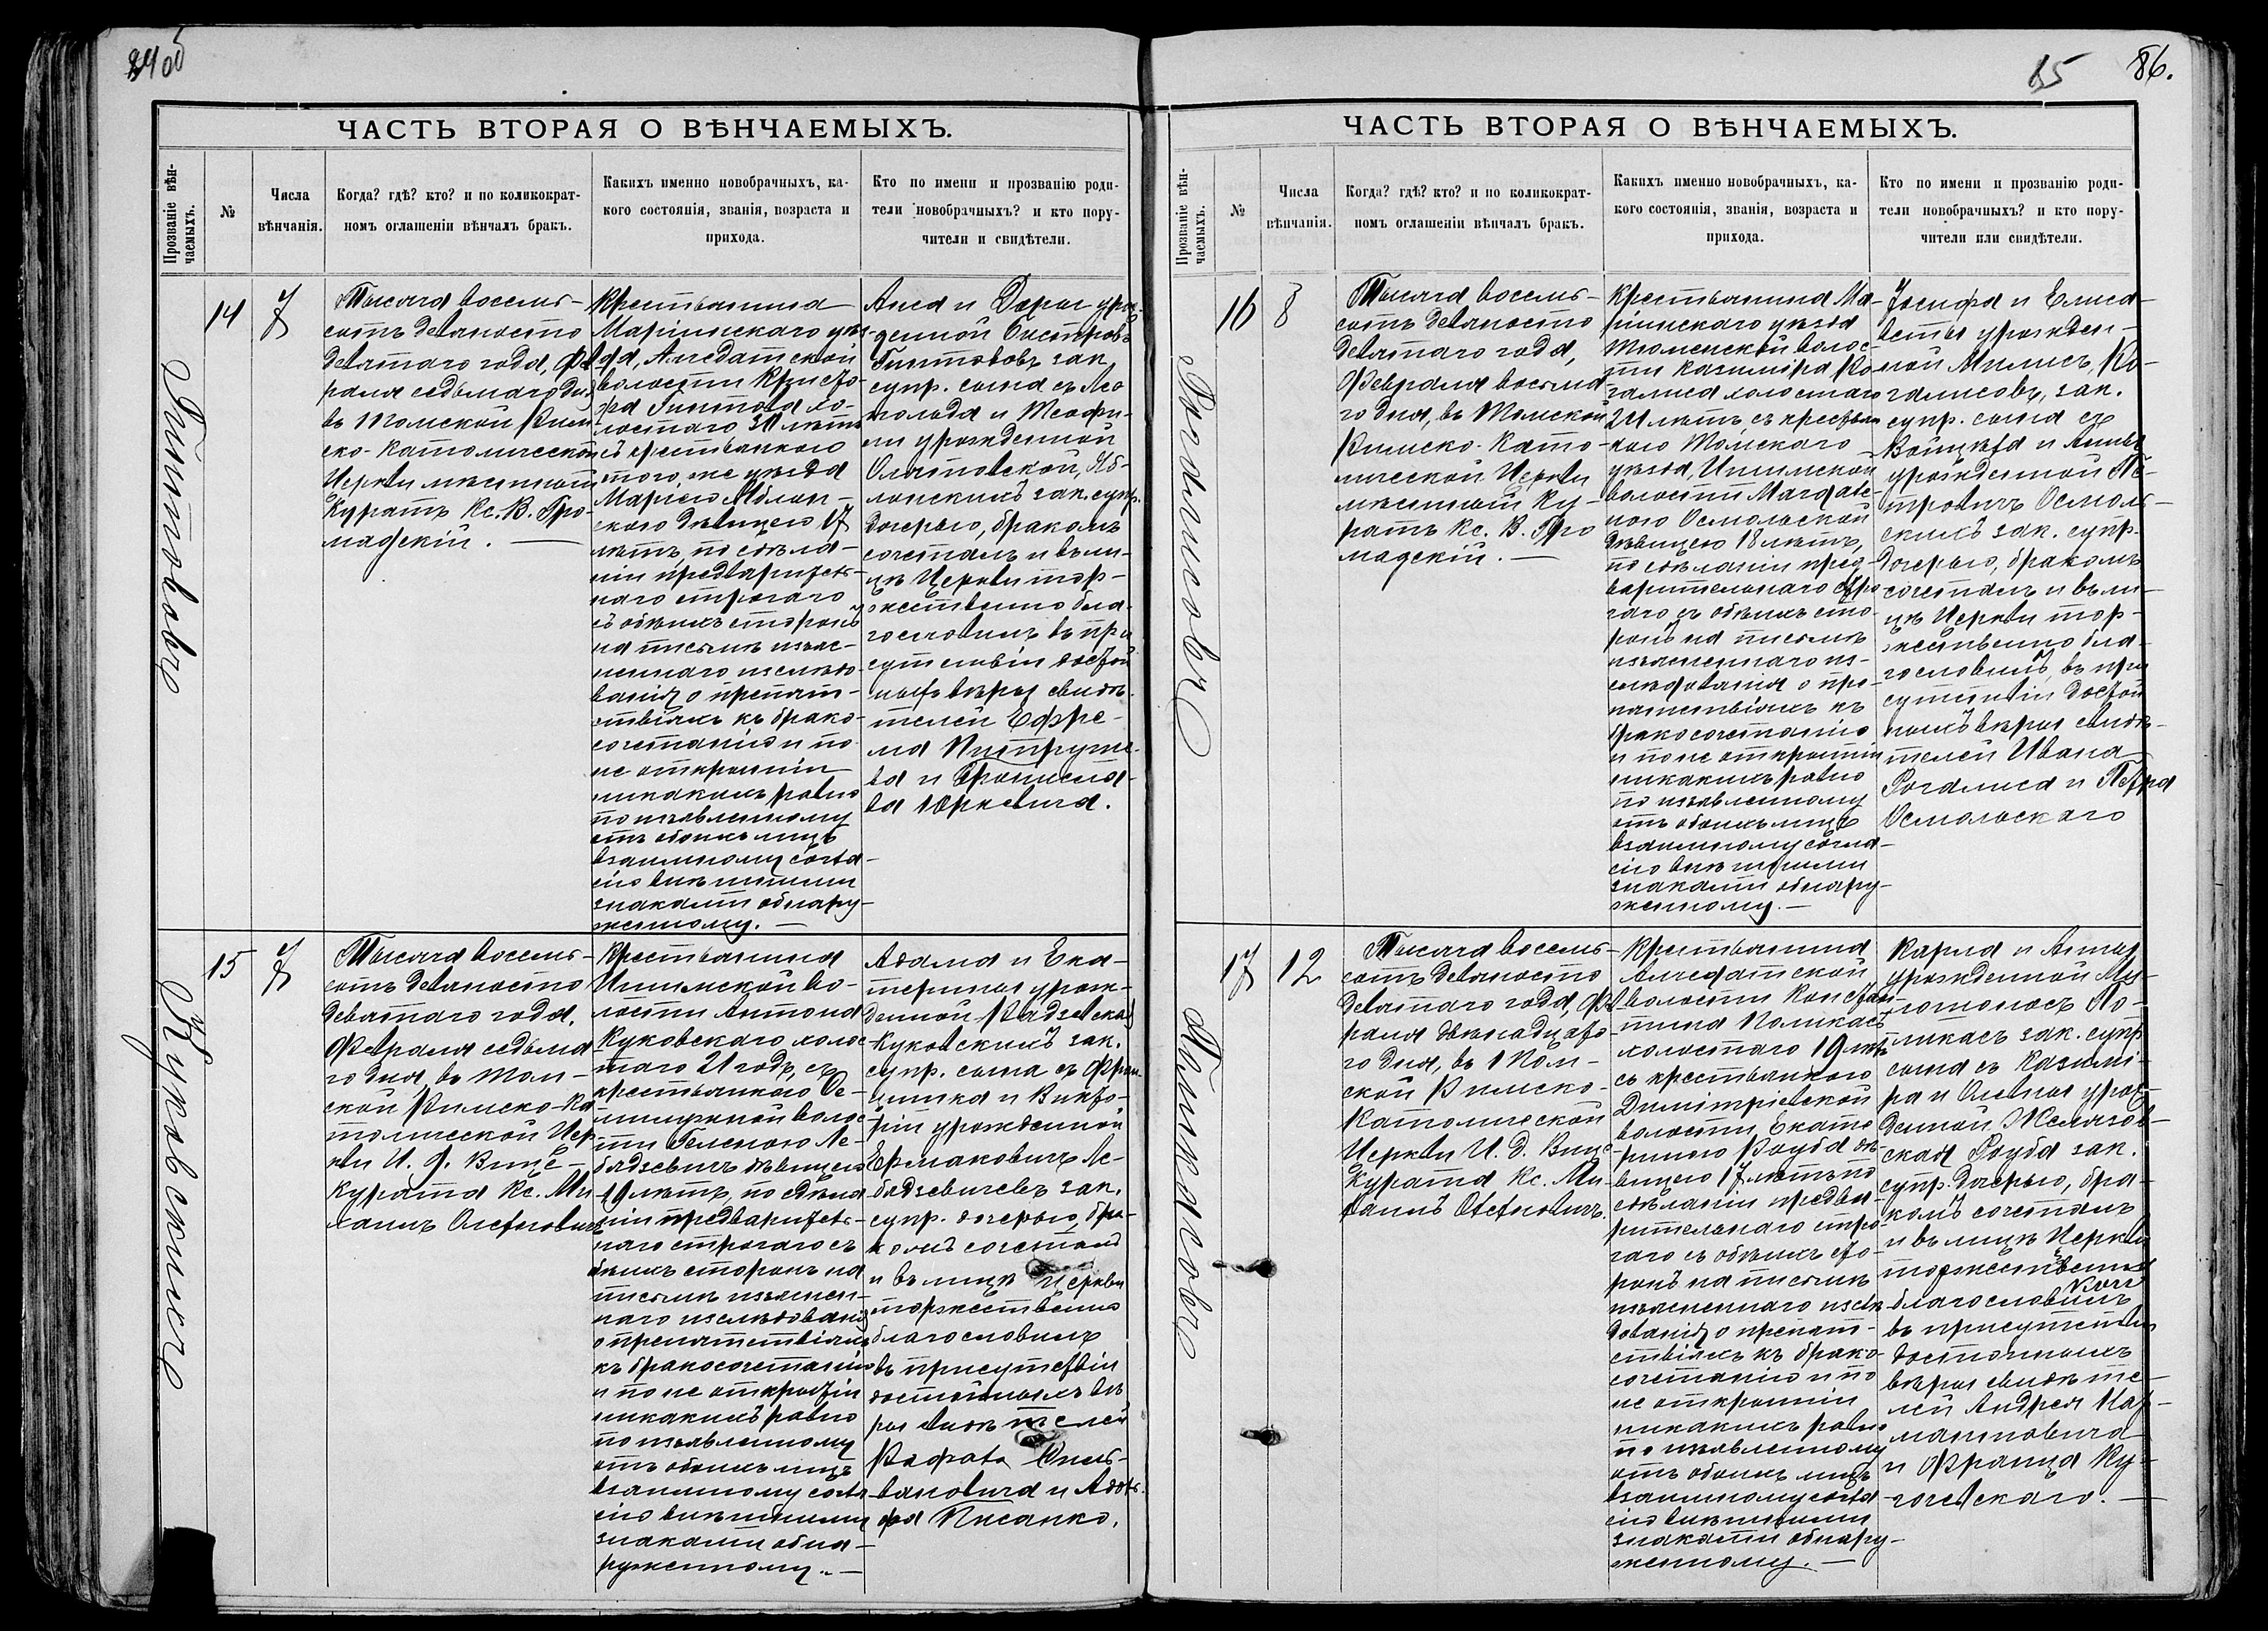 85
86.
ЧАСТЬ ВТОРАЯ О ВѢНЧАЕМЫХЪ.
Прозваніе вѣн-
чаемыхъ.
№
Числа
вѣнчанія.
Когда? гдѣ? кто? и по коликократ-
номъ оглашеніи вѣнчалъ бракъ.
Какихъ именно новобрачныхъ, ка-
кого состоянія, званія, возраста и
прихода.
Кто по имени и прозванію роди-
тели новобрачныхъ? и кто пору-
чители и свидѣтели.
14
7
Тысяча восемь-
сотъ девяносто
девятаго года, Фев
раля седьмаго дня
въ Томской Рим
ско-Католической
Церкви мѣстный
Куратъ Кс. В. Гро-
мадскій.
Крестьянина
Маріинскаго уѣз
да, Алчедатской
волости Кристо-
фа Гинтова хо-
лостаго 30 лѣтъ
съ крестьянкою
того же уѣзда
дѣвицею 17
лѣтъ, по сдѣла-
ніи предваритель-
наго строгаго
съ обѣихъ сторонъ
на письмѣ изъяс-
неннаго изслѣдо-
ванія о препят-
ствіяхъ къ брако-
сочетанію и по
не открытіи
никакихъ равно
по изъявленному
отъ обоихъ лицъ
взаимному согла-
сію внѣшними
знаками обнару-
женному.
супр. сына съ Лео
польда и Теофи-
ли урожденной
лонскихъ зак. супр.
дочерью, бракомъ
сочеталъ и въ ли-
цѣ Церкви тор-
жественно бла-
гословилъ въ при
сутствіи достой
ныхъ вѣры свидѣ-
телей Ефре-
ма
ва и Бронисла-
ва Юркевича.
15
7
Тысяча восемь-
сотъ девяносто
девятаго года,
Февраля седьма
го дня, въ Том-
ской Римско-Ка
толической Цер
кви И. д. Вице-
Курата Кс. Ми
хаилъ Олехновичъ
Крестьянина
Ишимской во-
лости Антона
Куковскаго холос
таго 21 годъ, съ
крестьянкою
волос
ти Геленою Ле-
бядзевичъ дѣвицею
19 лѣтъ, по сдѣла
ніи предваритель-
наго строгаго съ
обѣихъ сторонъ на
письмѣ изъяснен-
наго изслѣдованія
о препятствіяхъ
къ бракосочетанію
и по не открытіи
никакихъ равно
по изъявленному
отъ обоихъ лицъ
взаимному согла
сію внѣшними
знаками обна-
руженному.
Адама и Ека-
терины урож-
денной
Куковскихъ зак.
супр. сына съ Фран-
цишка и Викто-
ріи урожденной
Ермаковичъ Ле-
бядзевичевъ зак.
супр. дочерью, бра-
комъ сочеталъ
и въ лицѣ Церкви
торжественно
благословилъ
въ присутствіи
достойныхъ вѣ
ры свидѣтелей
вановича и Адоль-
фа Писанко.
ЧАСТЬ ВТОРАЯ О ВѢНЧАЕМЫХЪ.
Прозваніе вѣн-
чаемыхъ.
№
Числа
вѣнчанія.
Когда? гдѣ? кто? и по коликократ-
номъ оглашеніи вѣнчалъ бракъ.
Какихъ именно новобрачныхъ, ка-
кого состоянія, званія, возраста и
прихода.
Кто по имени и прозванію роди-
тели новобрачныхъ? и кто пору-
чители или свидѣтели.
16
8
Тысяча восемь-
сотъ девяносто
девятаго года,
Февраля восьма
го дня, въ Томской
Римско-Като-
лической Церкви
мѣстный Ку-
ратъ Кс. В. Гро
мадскій.
Крестьянина Ма-
ріинскаго уѣзда
Тюменской волос-
ти Казиміра Ро
галиса холостаго
21 лѣтъ, съ крестьян
кою Томскаго
уѣзда, Ишимской
волости Маргале-
ною Осмольской
дѣвицею 18 лѣтъ,
по сдѣланіи пред-
варительнаго стро
гаго съ обѣихъ сто-
ронъ на письмѣ
изъясненнаго из-
слѣдованія о пре-
пятствіяхъ къ
бракосочетанію
и по не открытіи
никакихъ равно
по изъявленному
отъ обоихъ лицъ
взаимному согла-
сію внѣшними
знаками обнару-
женному.
Іосифа и Елиса-
веты урожден-
ной Милисъ, Ро-
галисовъ, зак.
супр. сына съ
Войцѣха и Анны
урожденной Пе-
тровичъ Осмоль-
скихъ зак. супр.
дочерью, бракомъ
сочеталъ и въ ли-
цѣ Церкви тор-
жественно бла-
гословилъ, въ при
сутствіи достой
ныхъ вѣры свидѣ-
телей Ивана
Рогалиса и Петра
Осмольскаго
17
12
Тысяча восемь-
сотъ девяносто
девятаго года, Фев
раля двѣнадцато-
го дня, въ Том-
ской Римско-
Католической
Церкви И. д. Вице-
Курата Кс. Ми-
хаилъ Олехновичъ.
Крестьянина
Алчедатской
волости Констан-
тина Поликасъ
холостаго 19 лѣтъ
съ крестьянкою
Димитріевской
волости, Екате-
риною Роуба дѣ-
вицею 17 лѣтъ по
сдѣланіи предва-
рительнаго стро-
гаго съ обѣихъ сто-
ронъ на письмѣ
изъясненнаго изслѣ
дованія о препят-
ствіяхъ къ брако-
сочетанію и по
не открытіи
никакихъ равно
по изъявленному
отъ обоихъ лицъ
взаимному согла
сію внѣшними
знаками обнару-
женному.
Карла и Анны
урожденной
По-
ликасъ зак. супр.
сына съ Казими-
ра и урож-
денной Желязов-
ская Роуба зак.
супр. дочерью, бра-
комъ сочеталъ
и въ лицѣ Церкви
торжественно
благословилъ
въ присутствіи
достойныхъ
вѣры свидѣте-
лей Андрея
и Франца